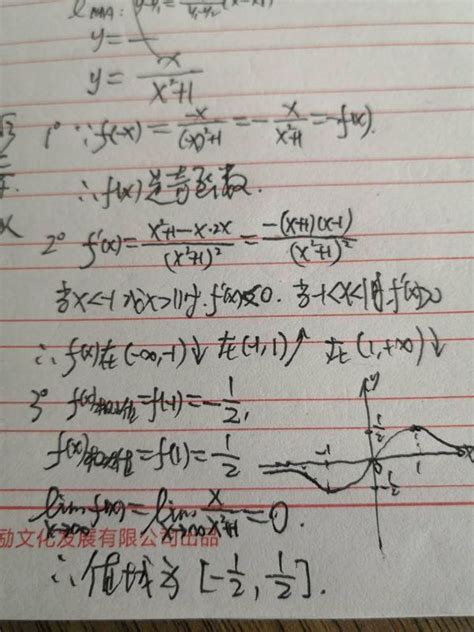 y =
y = x/(x²+1)
1° ∵f(-x) = -x/((-x)²+1) = -x/(x²+1) = -f(x).
∴f(x)是奇函数.
2° f'(x) = (x²+1-x·2x)/(x²+1)² = -(x+1)(x-1)/(x²+1)²
当x<-1或x>1时.f'(x)<0. 当-1<x<1时.f'(x)>0
∴f(x)在(-∞,-1)↓ 在(-1,1)↑ 在(1,+∞)↓
3° f(x)极小值=f(-1)=-1/2,
f(x)极大值=f(1)=1/2
lim x→∞ f(x) = lim x→∞ x/(x²+1) = 0.
励文化发展有限公司出品
∴值域为[-1/2, 1/2].
y
1/2
-1
0
1
x
-1/2